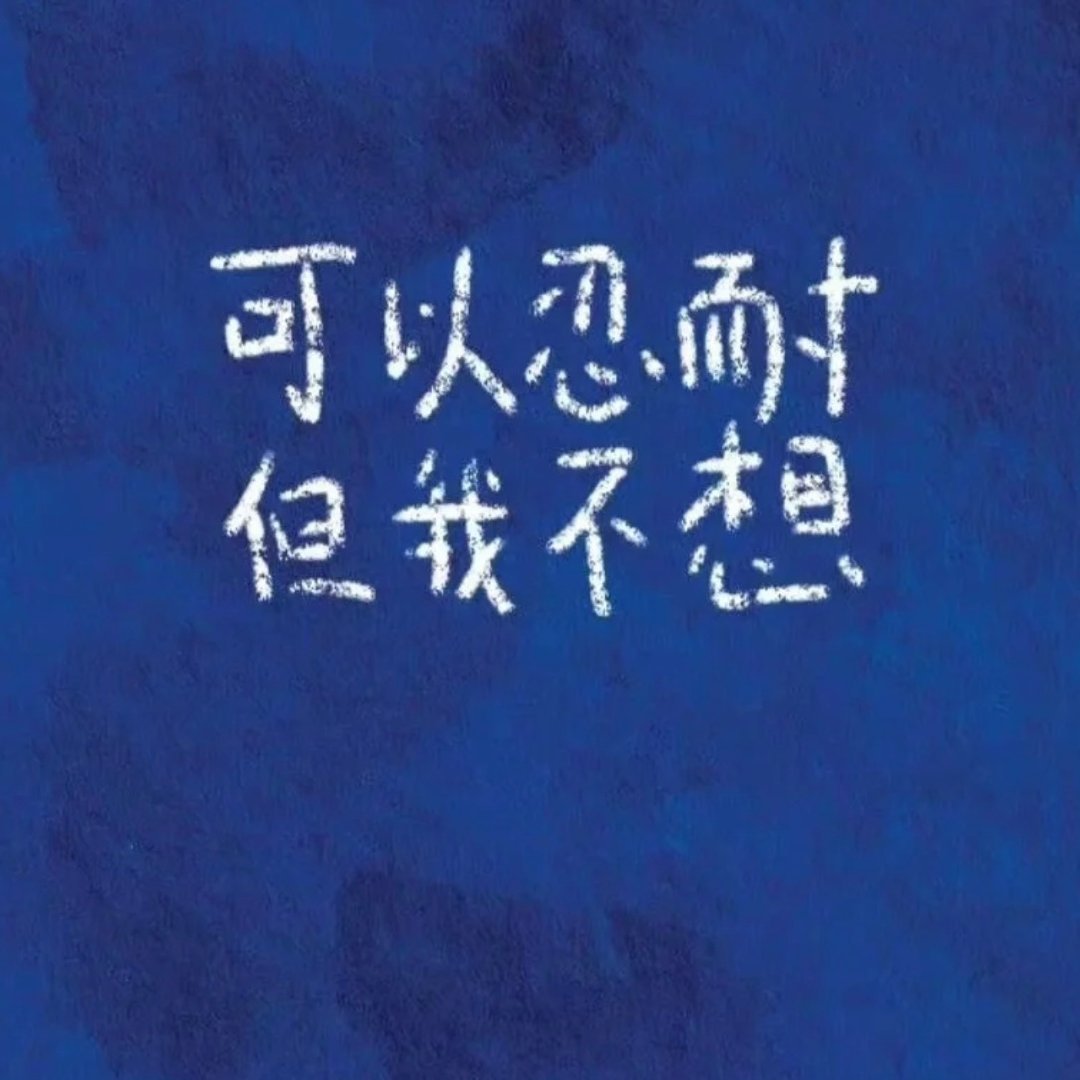 可以忍耐
但我不想